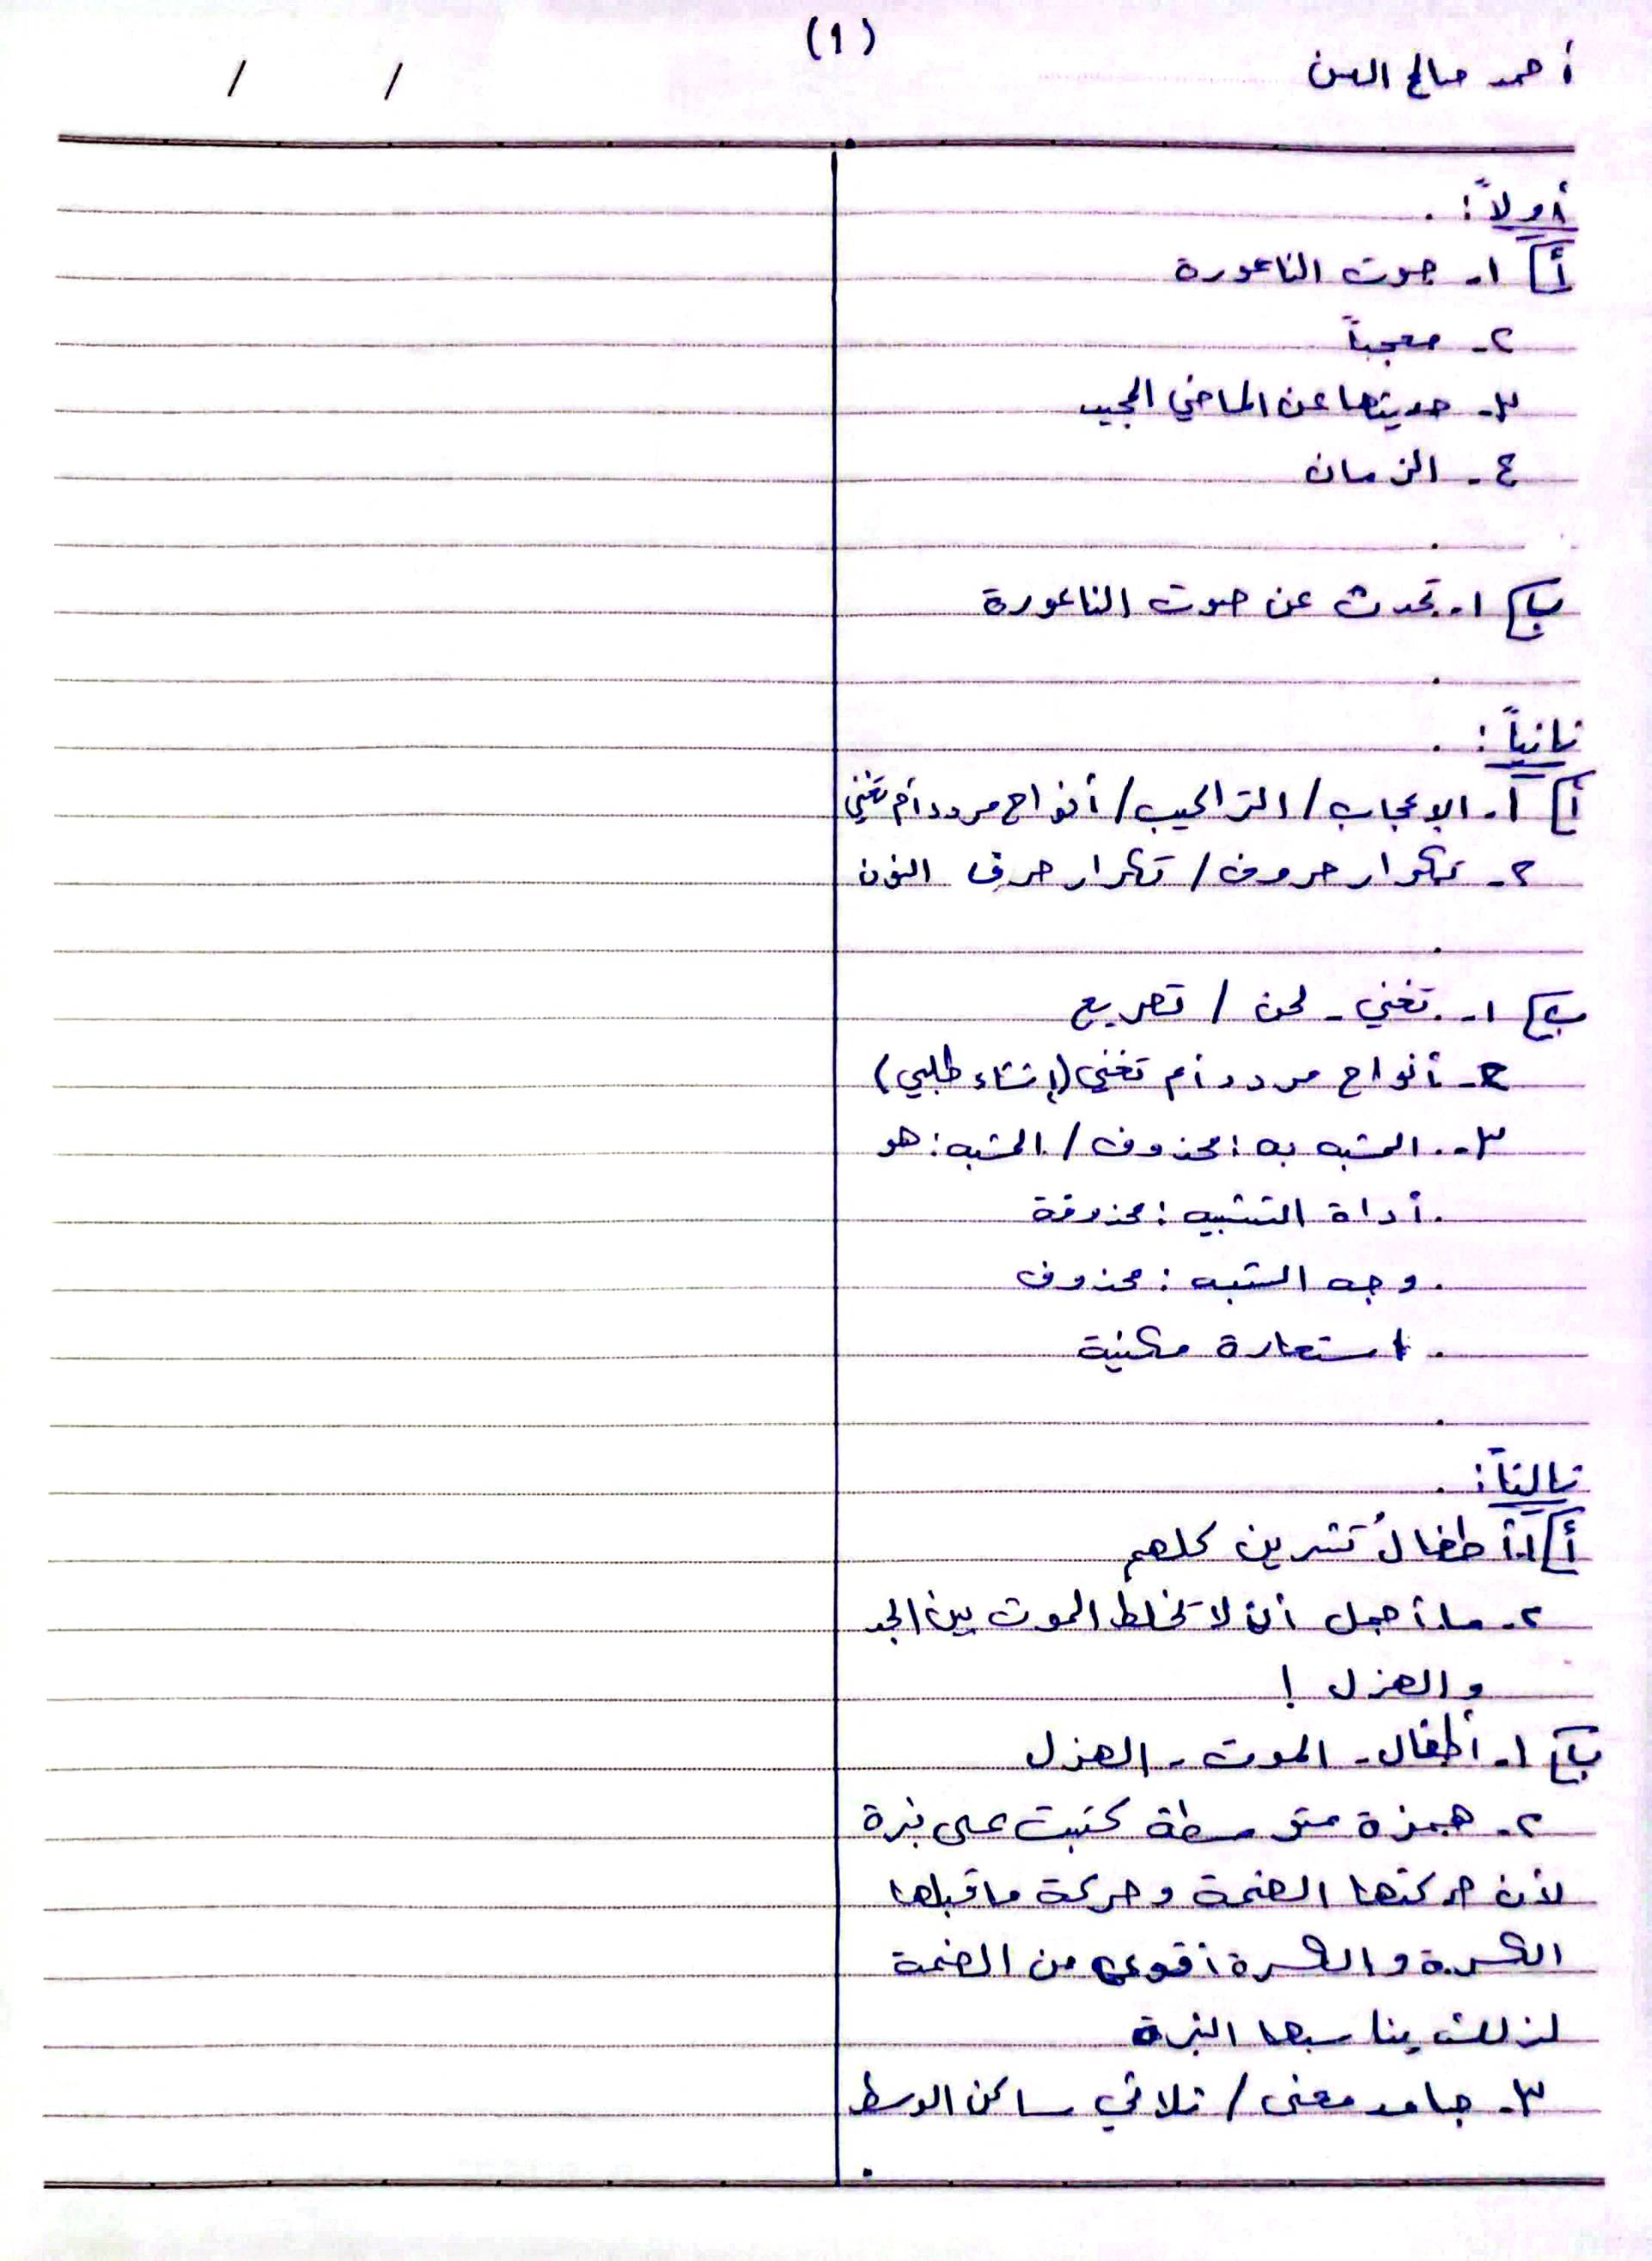 (١)
أحمد صالح
/ /
أولاً:
أ] ١- صوت الناعورة
٢- معجباً
٣- حديثها عن الماضي المجيد
٤- الزمان
ب] ١- تحدث عن صوت الناعورة
ثانياً:
أ] ١- الإعجاب / التراكيب / أنواح مردد أم تغني
٢- تكرار حروف / تكرار حرف النون
ب] ١- تغني - لحن / تصريع
٢- أنواح مردد أم تغني (إنشاء طلبي)
٣- المشبه به: محذوف / المشبه: هو
أداة التشبيه: محذوفة
وجه الشبه: محذوف
استعارة مكنية
ثالثاً:
أ] ١- أطفالُ تشرين كلهم
٢- ما أجمل أن لا تخلط الموت بين الجد
والهزل!
ب] ١- أطفال - الموت - الهزل
٢- همزة متوسطة كتبت على نبرة
لأن حركتها الضمة وحركة ما قبلها
الكسرة والكسرة أقوى من الضمة
لذلك يناسبها النبرة
٣- جامد معنى / ثلاثي ساكن الوسط